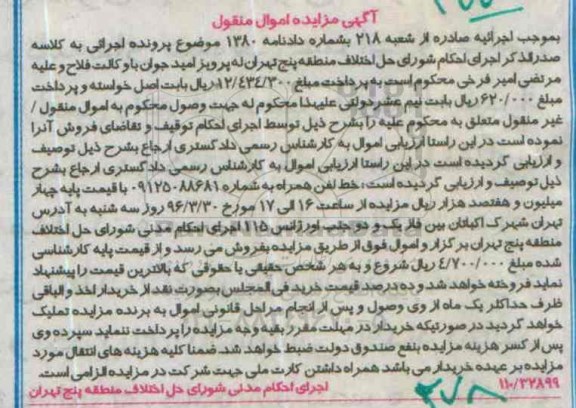 آگهی مزایده اموال منقول
بموجب اجرائیه صادره از شعبه ۲۱۸ بشماره دادنامه ۱۳۸۰ موضوع پرونده اجرائی به کلاسه
صدرالذکر اجرای احکام شورای حل اختلاف منطقه پنج تهران له پرویز امید جوان با وکالت فلاح و علیه
مرتضی امیر فرخی محکوم است به پرداخت مبلغ ۱۲/۴۳۴/۳۰۰ ریال بابت اصل خواسته و پرداخت
مبلغ ۶۲۰/۰۰۰ ریال بابت نیم عشر دولتی علیهذا محکوم له جهت وصول محکوم به اموال منقول /
غیر منقول متعلق به محکوم علیه را بشرح ذیل توسط اجرای احکام توقیف و تقاضای فروش آنرا
نموده است در این راستا ارزیابی اموال به کارشناس رسمی دادگستری ارجاع بشرح ذیل توصیف
و ارزیابی گردیده است در این راستا ارزیابی اموال به کارشناس رسمی دادگستری ارجاع بشرح
ذیل توصیف و ارزیابی گردیده است، خط تلفن همراه به شماره ۰۹۱۲۵۰۸۸۶۸۱ با قیمت پایه چهار
میلیون و هفتصد هزار ریال مزایده از ساعت ۱۶ الی ۱۷ مورخ ۹۶/۳/۳۰ روز سه شنبه به آدرس
تهران شهرک اکباتان بین فاز یک و دو جنب اورژانس ۱۱۵ اجرای احکام مدنی شورای حل اختلاف
منطقه پنج تهران برگزار و اموال فوق از طریق مزایده بفروش می رسد و از قیمت پایه کارشناسی
شده مبلغ ۴/۷۰۰/۰۰۰ ریال شروع و به هر شخص حقیقی یا حقوقی که بالاترین قیمت را پیشنهاد
نماید فروخته خواهد شد و ده درصد قیمت خرید فی المجلس بصورت نقد از خریدار اخذ و الباقی
ظرف حداکثر یک ماه از وی وصول و پس از انجام مراحل قانونی اموال به برنده مزایده تملیک
خواهد گردید در صورتیکه خریدار در مهلت مقرر بقیه وجه مزایده را پرداخت ننماید سپرده وی
پس از کسر هزینه مزایده بنفع صندوق دولت ضبط خواهد شد. ضمنا کلیه هزینه های انتقال مورد
مزایده بر عهده خریدار می باشد همراه داشتن کارت ملی جهت شرکت در مزایده الزامی است.
۱۱۰/۳۲۸۹۹ اجرای احکام مدنی شورای حل اختلاف منطقه پنج تهران